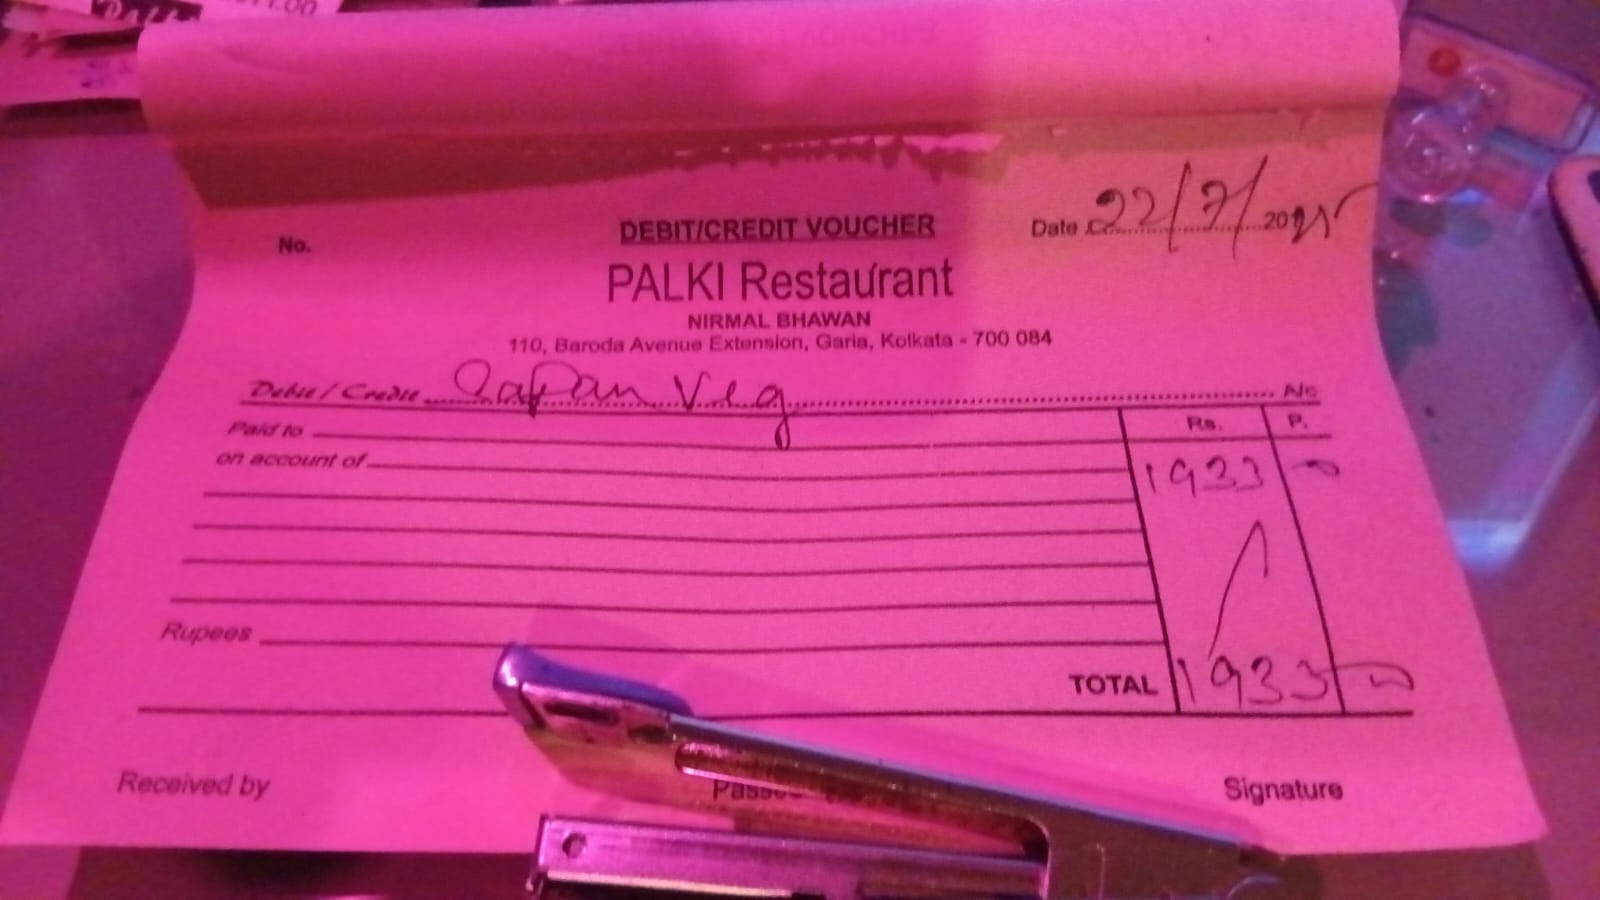 DEBIT/CREDIT VOUCHER
No.
Date 22/7/2025
PALKI Restaurant
NIRMAL BHAWAN
110, Baroda Avenue Extension, Garia, Kolkata - 700 084
Debit / Credit Veg A/c
Rs. P.
Paid to
on account of
1933
Rupees
TOTAL 1933
Received by
Signature